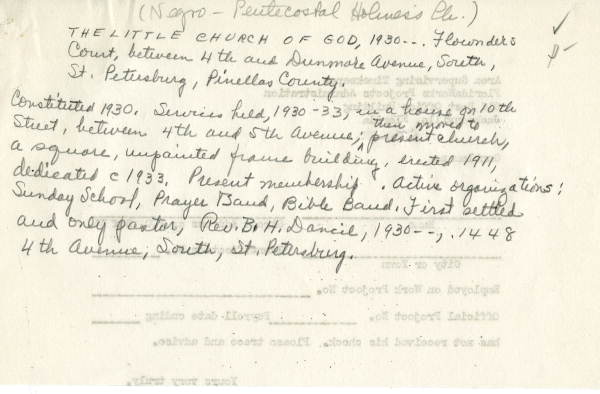 (Negro - Pentecostal Holiness Ch.)
THE LITTLE CHURCH OF GOD, 1930--. Flownders
Court, between 4th and Dunmore Avenue, South,
St. Petersburg, Pinellas County.
Constituted 1930. Services held, 1930-33, in a house on 10th
Street, between 4th and 5th Avenue; then moved to present church,
a square, unpainted frame building, erected 1911,
dedicated c 1933. Present membership . Active organizations:
Sunday School, Prayer Band, Bible Band. First settled
and only pastor, Rev. B. H. Dancil, 1930--, 1448
4th Avenue, South, St. Petersburg.
City or Town
Employed on Work Project No.
Official Project No. Payroll date ending
has not received his check. Please trace and advise.
Yours very truly,